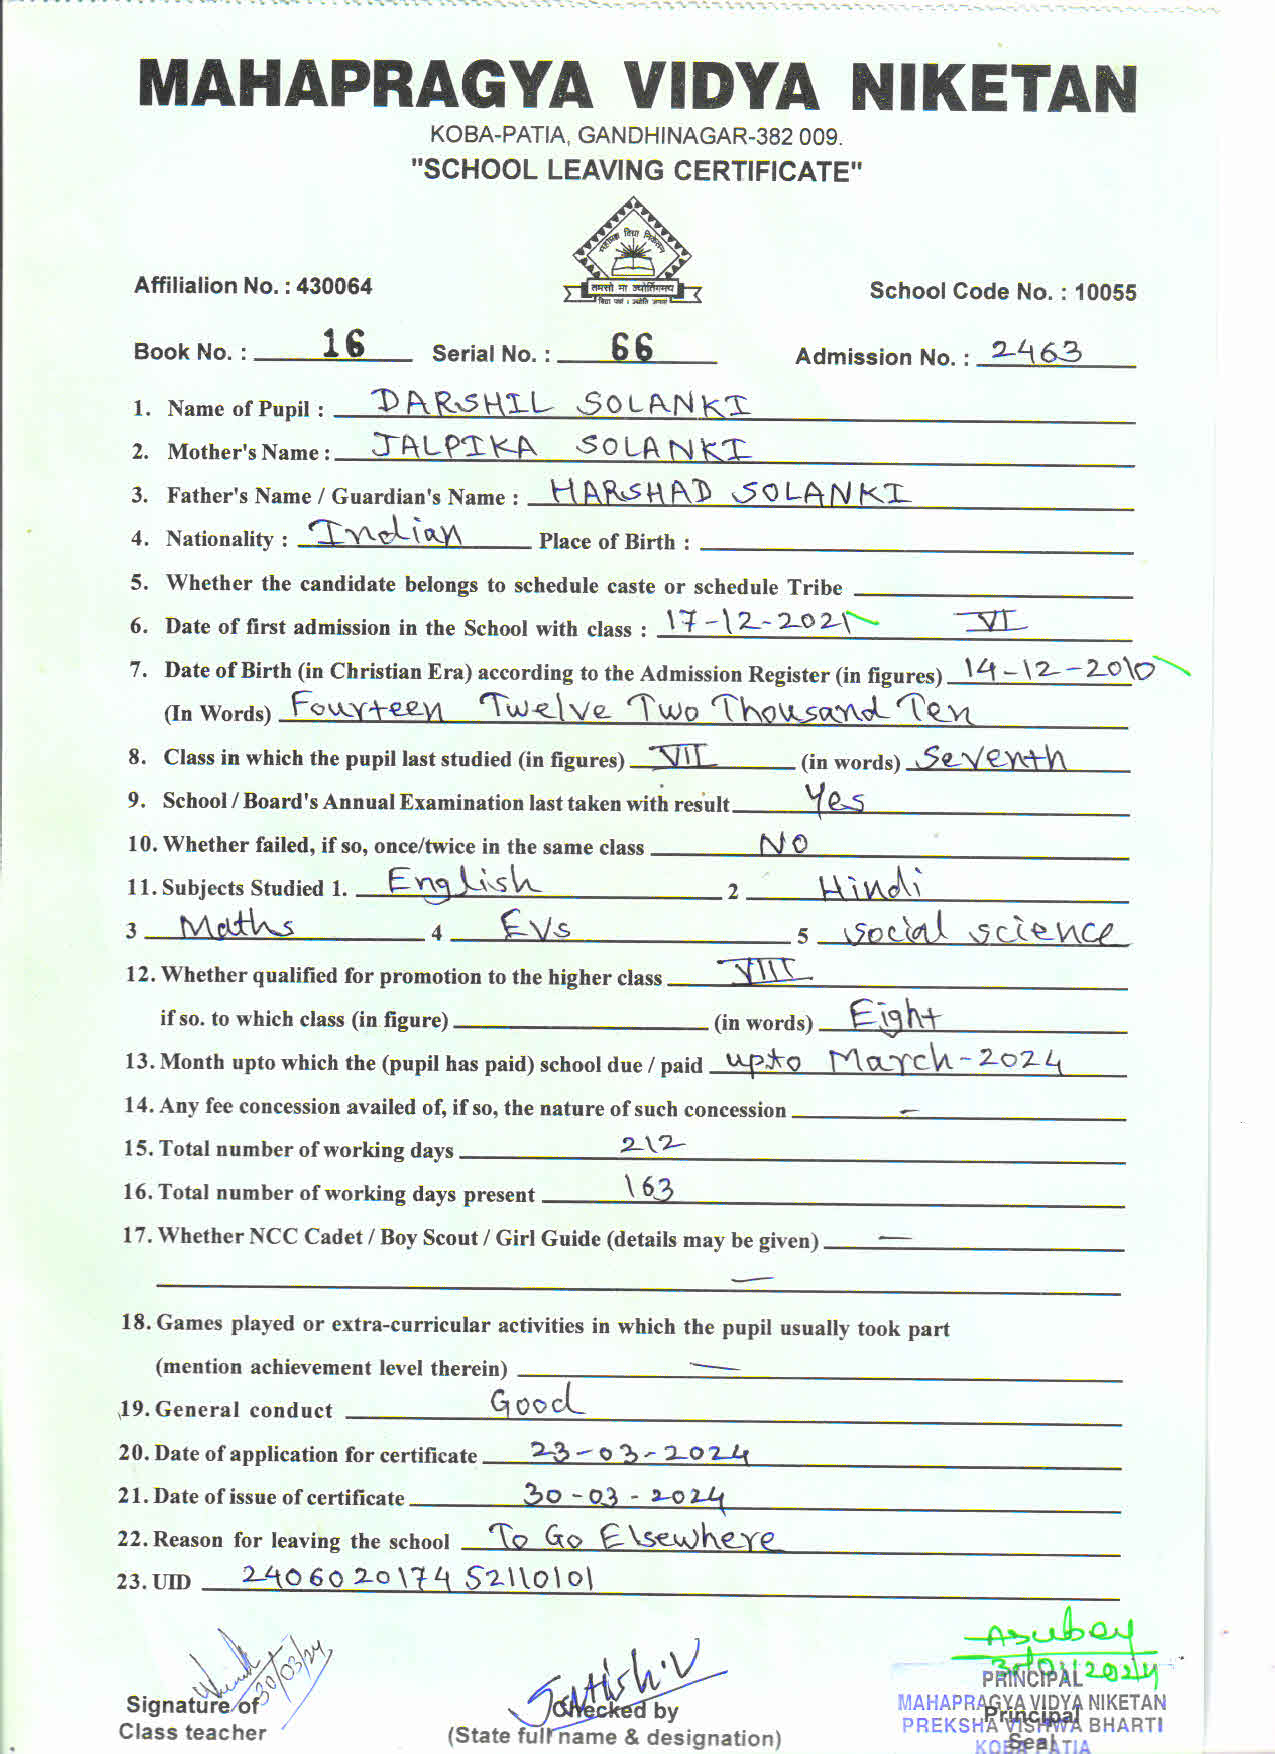 MAHAPRAGYA VIDYA NIKETAN
KOBA-PATIA, GANDHINAGAR-382 009.
"SCHOOL LEAVING CERTIFICATE"
तमसो मा ज्योतिर्गमय
Affilialion No. : 430064
School Code No. : 10055
Book No. : 16 Serial No. : 66 Admission No. : 2463
1. Name of Pupil : DARSHIL SOLANKI
2. Mother's Name : JALPIKA SOLANKI
3. Father's Name / Guardian's Name : HARSHAD SOLANKI
4. Nationality : Indian Place of Birth :
5. Whether the candidate belongs to schedule caste or schedule Tribe
6. Date of first admission in the School with class : 17-12-2021 VI
7. Date of Birth (in Christian Era) according to the Admission Register (in figures) 14-12-2010
(In Words) Fourteen Twelve Two Thousand Ten
8. Class in which the pupil last studied (in figures) VII (in words) Seventh
9. School / Board's Annual Examination last taken with result Yes
10. Whether failed, if so, once/twice in the same class NO
11. Subjects Studied 1. English 2 Hindi
3 Maths 4 EVs 5 social science
12. Whether qualified for promotion to the higher class VIII
if so. to which class (in figure) (in words) Eight
13. Month upto which the (pupil has paid) school due / paid upto March-2024
14. Any fee concession availed of, if so, the nature of such concession -
15. Total number of working days 212
16. Total number of working days present 163
17. Whether NCC Cadet / Boy Scout / Girl Guide (details may be given) —
—
18. Games played or extra-curricular activities in which the pupil usually took part
(mention achievement level therein) —
19. General conduct Good
20. Date of application for certificate 23-03-2024
21. Date of issue of certificate 30-03-2024
22. Reason for leaving the school To Go Elsewhere
23. UID 240602017452110101
30/03/24
Signature of
Class teacher
Checked by
(State full name & designation)
PRINCIPAL
MAHAPRAGYA VIDYA NIKETAN
PREKSHA VISHWA BHARTI
KOBA PATIA
Principal
Seal